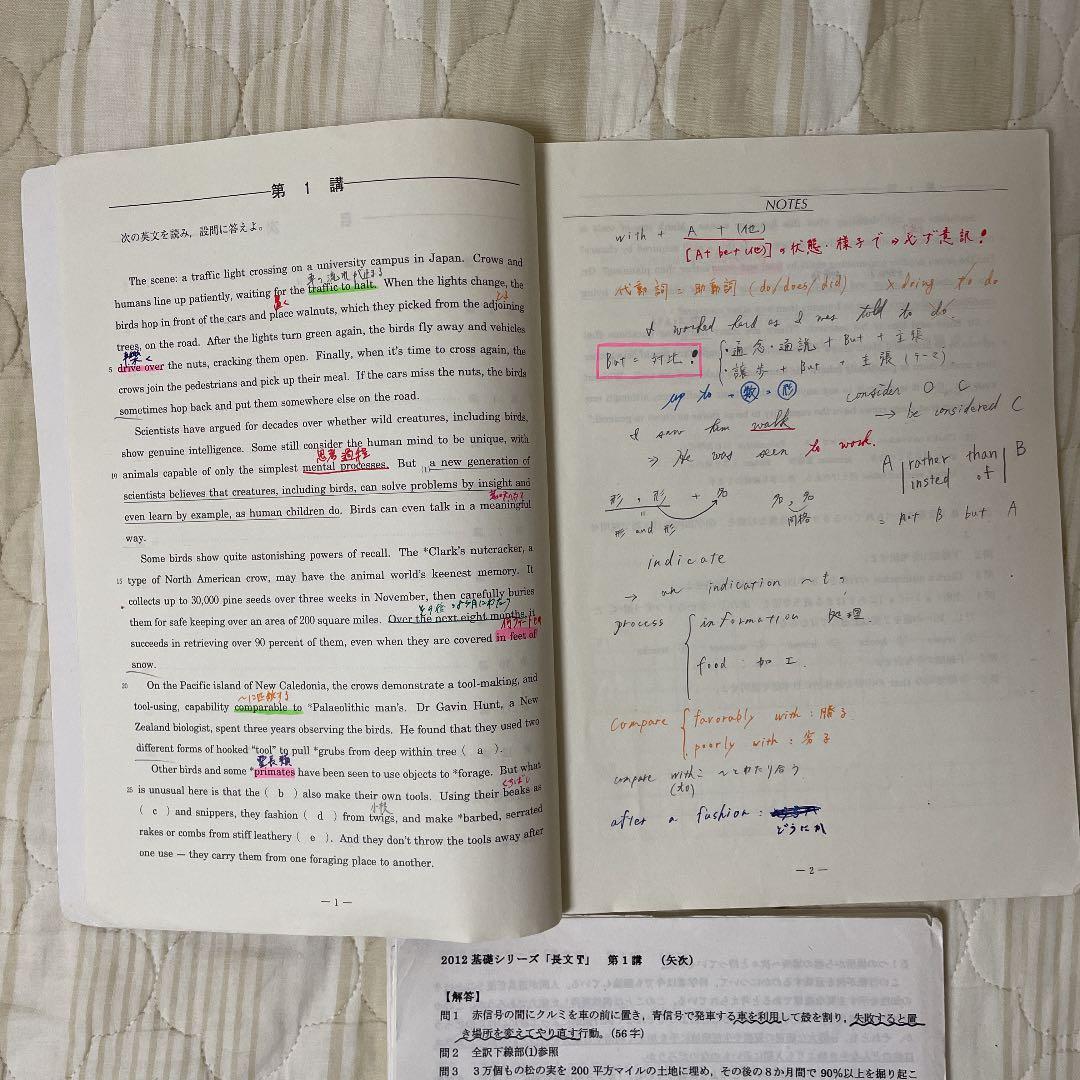 第 1 講
次の英文を読み，設問に答えよ。
The scene: a traffic light crossing on a university campus in Japan. Crows and
車の流れ
humans line up patiently, waiting for the traffic to halt. When the lights change, the
置く
birds hop in front of the cars and place walnuts, which they picked from the adjoining
trees, on the road. After the lights turn green again, the birds fly away and vehicles
轢く
5 drive over the nuts, cracking them open. Finally, when it's time to cross again, the
crows join the pedestrians and pick up their meal. If the cars miss the nuts, the birds
sometimes hop back and put them somewhere else on the road.
Scientists have argued for decades over whether wild creatures, including birds,
show genuine intelligence. Some still consider the human mind to be unique, with
思考過程
10 animals capable of only the simplest mental processes. But (1) a new generation of
scientists believes that creatures, including birds, can solve problems by insight and
even learn by example, as human children do. Birds can even talk in a meaningful
way.
Some birds show quite astonishing powers of recall. The *Clark's nutcracker, a
15 type of North American crow, may have the animal world's keenest memory. It
collects up to 30,000 pine seeds over three weeks in November, then carefully buries
その後8ヶ月にわたって
them for safe keeping over an area of 200 square miles. Over the next eight months, it
succeeds in retrieving over 90 percent of them, even when they are covered in feet of
snow.
20 On the Pacific island of New Caledonia, the crows demonstrate a tool-making, and
〜に匹敵する
tool-using, capability comparable to *Palaeolithic man's. Dr Gavin Hunt, a New
Zealand biologist, spent three years observing the birds. He found that they used two
different forms of hooked "tool" to pull *grubs from deep within tree ( a ).
霊長類
Other birds and some *primates have been seen to use objects to *forage. But what
くちばし
25 is unusual here is that the ( b ) also make their own tools. Using their beaks as
小枝
( c ) and snippers, they fashion ( d ) from twigs, and make *barbed, serrated
rakes or combs from stiff leathery ( e ). And they don't throw the tools away after
one use — they carry them from one foraging place to another.
— 1 —
NOTES
with + A + (他)
[A + be + (他)] の状態・様子で ⇒ 必ず意訳！
代動詞 = 助動詞 (do/does/did) × doing to do
I worked hard as I was told to do.
But = 対比！
・通念・通説 + But + 主張
・譲歩 + But + 主張 (テーマ)
up to + 数 + 形
consider O C
→ be considered C
I saw him walk
⇒ He was seen to work.
A rather than B
insted of
= not B but A
形 , 形 + 名
形 and 形
名 , 名
同格
indicate
→ an indication ~ t,
process
information 処理
food : 加工
compare
favorably with : 勝る
poorly with : 劣る
compare with :
(to)
after a fashion :
どうにか
— 2 —
2012 基礎シリーズ「長文T」 第1講 （矢次）
【解答】
問1 赤信号の間にクルミを車の前に置き，青信号で発車する車を利用して殻を割り，失敗すると置
き場所を変えてやり直す行動。(56字)
問2 全訳下線部(1)参照
問3 3万個もの松の実を 200 平方マイルの土地に埋め，その後の8か月間で 90%以上を掘り起こ